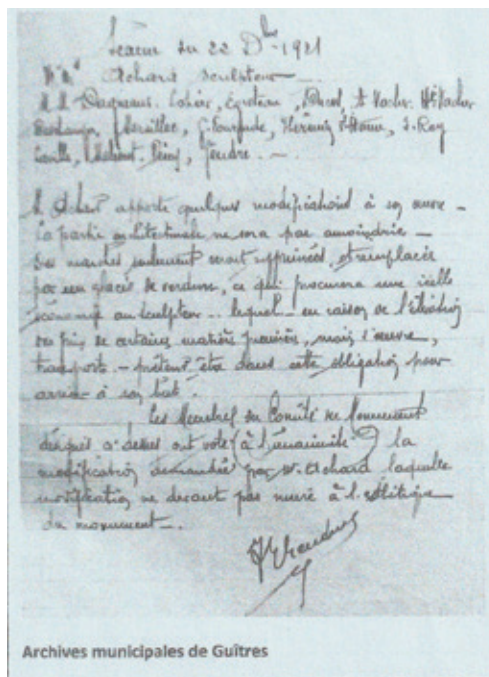 Séance du 22 Dbre 1921
Achard sculpteur
G. Fourgude, J. Roy
M. Achard apporte quelques modifications à son œuvre -
La partie architecturale ne sera pas amoindrie -
Des marches seulement seront supprimées, et remplacées
par un glacis de verdure, ce qui procurera une réelle
économie au sculpteur - lequel - en raison de l'élévation
des prix de certaines matières premières, main d'œuvre,
transports - prétend être dans cette obligation pour
arriver à son but.
Les Membres du Comité du Monument
désignés ci dessus ont voté à l'unanimité la
modification demandée par M. Achard laquelle
modification ne devant pas nuire à l'esthétique
du monument -.
Archives municipales de Guîtres